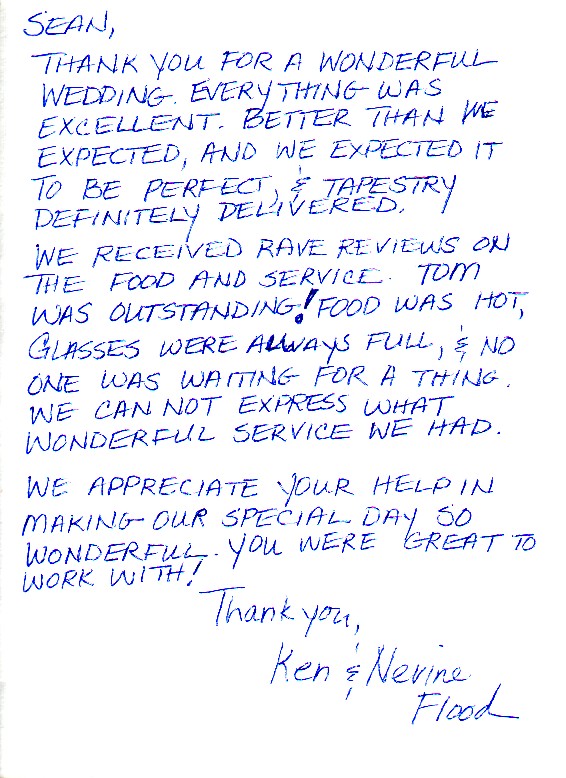 SEAN,
THANK YOU FOR A WONDERFUL
WEDDING. EVERYTHING WAS
EXCELLENT. BETTER THAN WE
EXPECTED, AND WE EXPECTED IT
TO BE PERFECT, & TAPESTRY
DEFINITELY DELIVERED.
WE RECEIVED RAVE REVIEWS ON
THE FOOD AND SERVICE. TOM
WAS OUTSTANDING! FOOD WAS HOT,
GLASSES WERE ALWAYS FULL, & NO
ONE WAS WAITING FOR A THING.
WE CAN NOT EXPRESS WHAT
WONDERFUL SERVICE WE HAD.
WE APPRECIATE YOUR HELP IN
MAKING OUR SPECIAL DAY SO
WONDERFUL. YOU WERE GREAT TO
WORK WITH!
Thank you,
Ken & Nevine
Flood